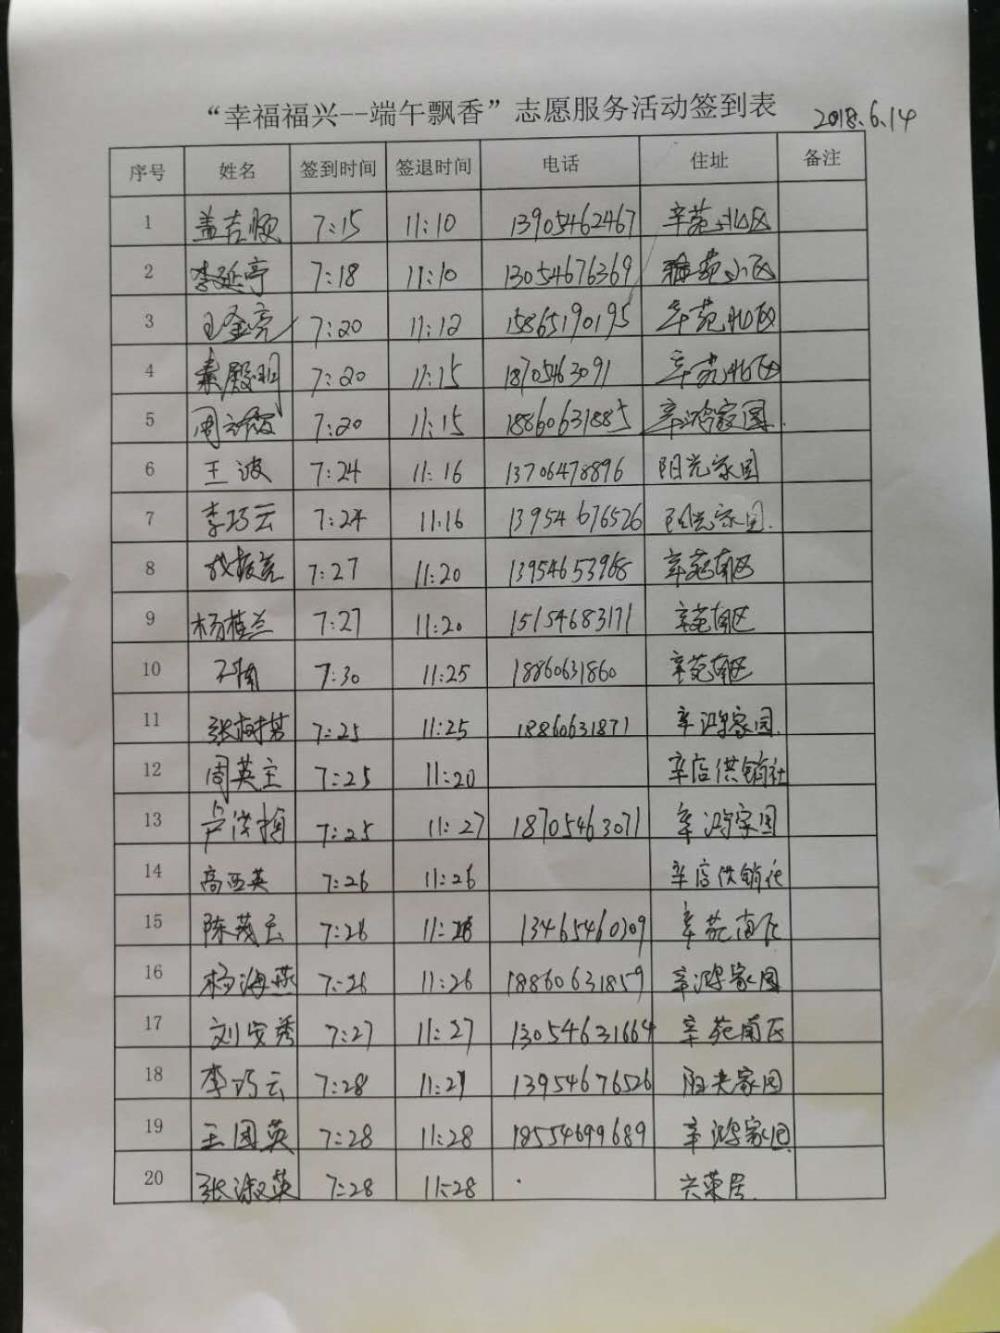 “幸福福兴--端午飘香”志愿服务活动签到表 2018.6.14
序号 姓名 签到时间 签退时间 电话 住址 备注
1 盖吉顺 7:15 11:10 13905462467 辛苑北区
2 李延亭 7:18 11:10 13054676369 小区
3 王金亮 7:20 11:12 15865190195 辛苑北区
4 秦殿明 7:20 11:15 18705463091 辛苑北区
5 周 7:20 11:15 18860631885 辛鸿家园
6 王波 7:24 11:16 13706478896 阳光家园
7 李巧云 7:24 11:16 13954676526 阳光家园
8 7:27 11:20 13954653968 辛苑南区
9 杨桂兰 7:27 11:20 15154683171 辛苑南区
10 7:30 11:25 18860631860 辛苑南区
11 张树 7:25 11:25 18860631871 辛鸿家园
12 周英 7:25 11:20 辛店供销社
13 卢洪梅 7:25 11:27 18705463071 辛鸿家园
14 高西英 7:26 11:26 辛店供销社
15 陈茂云 7:26 11:26 13465460309 辛苑南区
16 杨海燕 7:26 11:26 18860631859 辛鸿家园
17 刘安秀 7:27 11:27 13054631664 辛苑南区
18 李巧云 7:28 11:27 13954676526 阳光家园
19 王国英 7:28 11:28 18554699689 辛鸿家园
20 张淑英 7:28 11:28 兴荣居